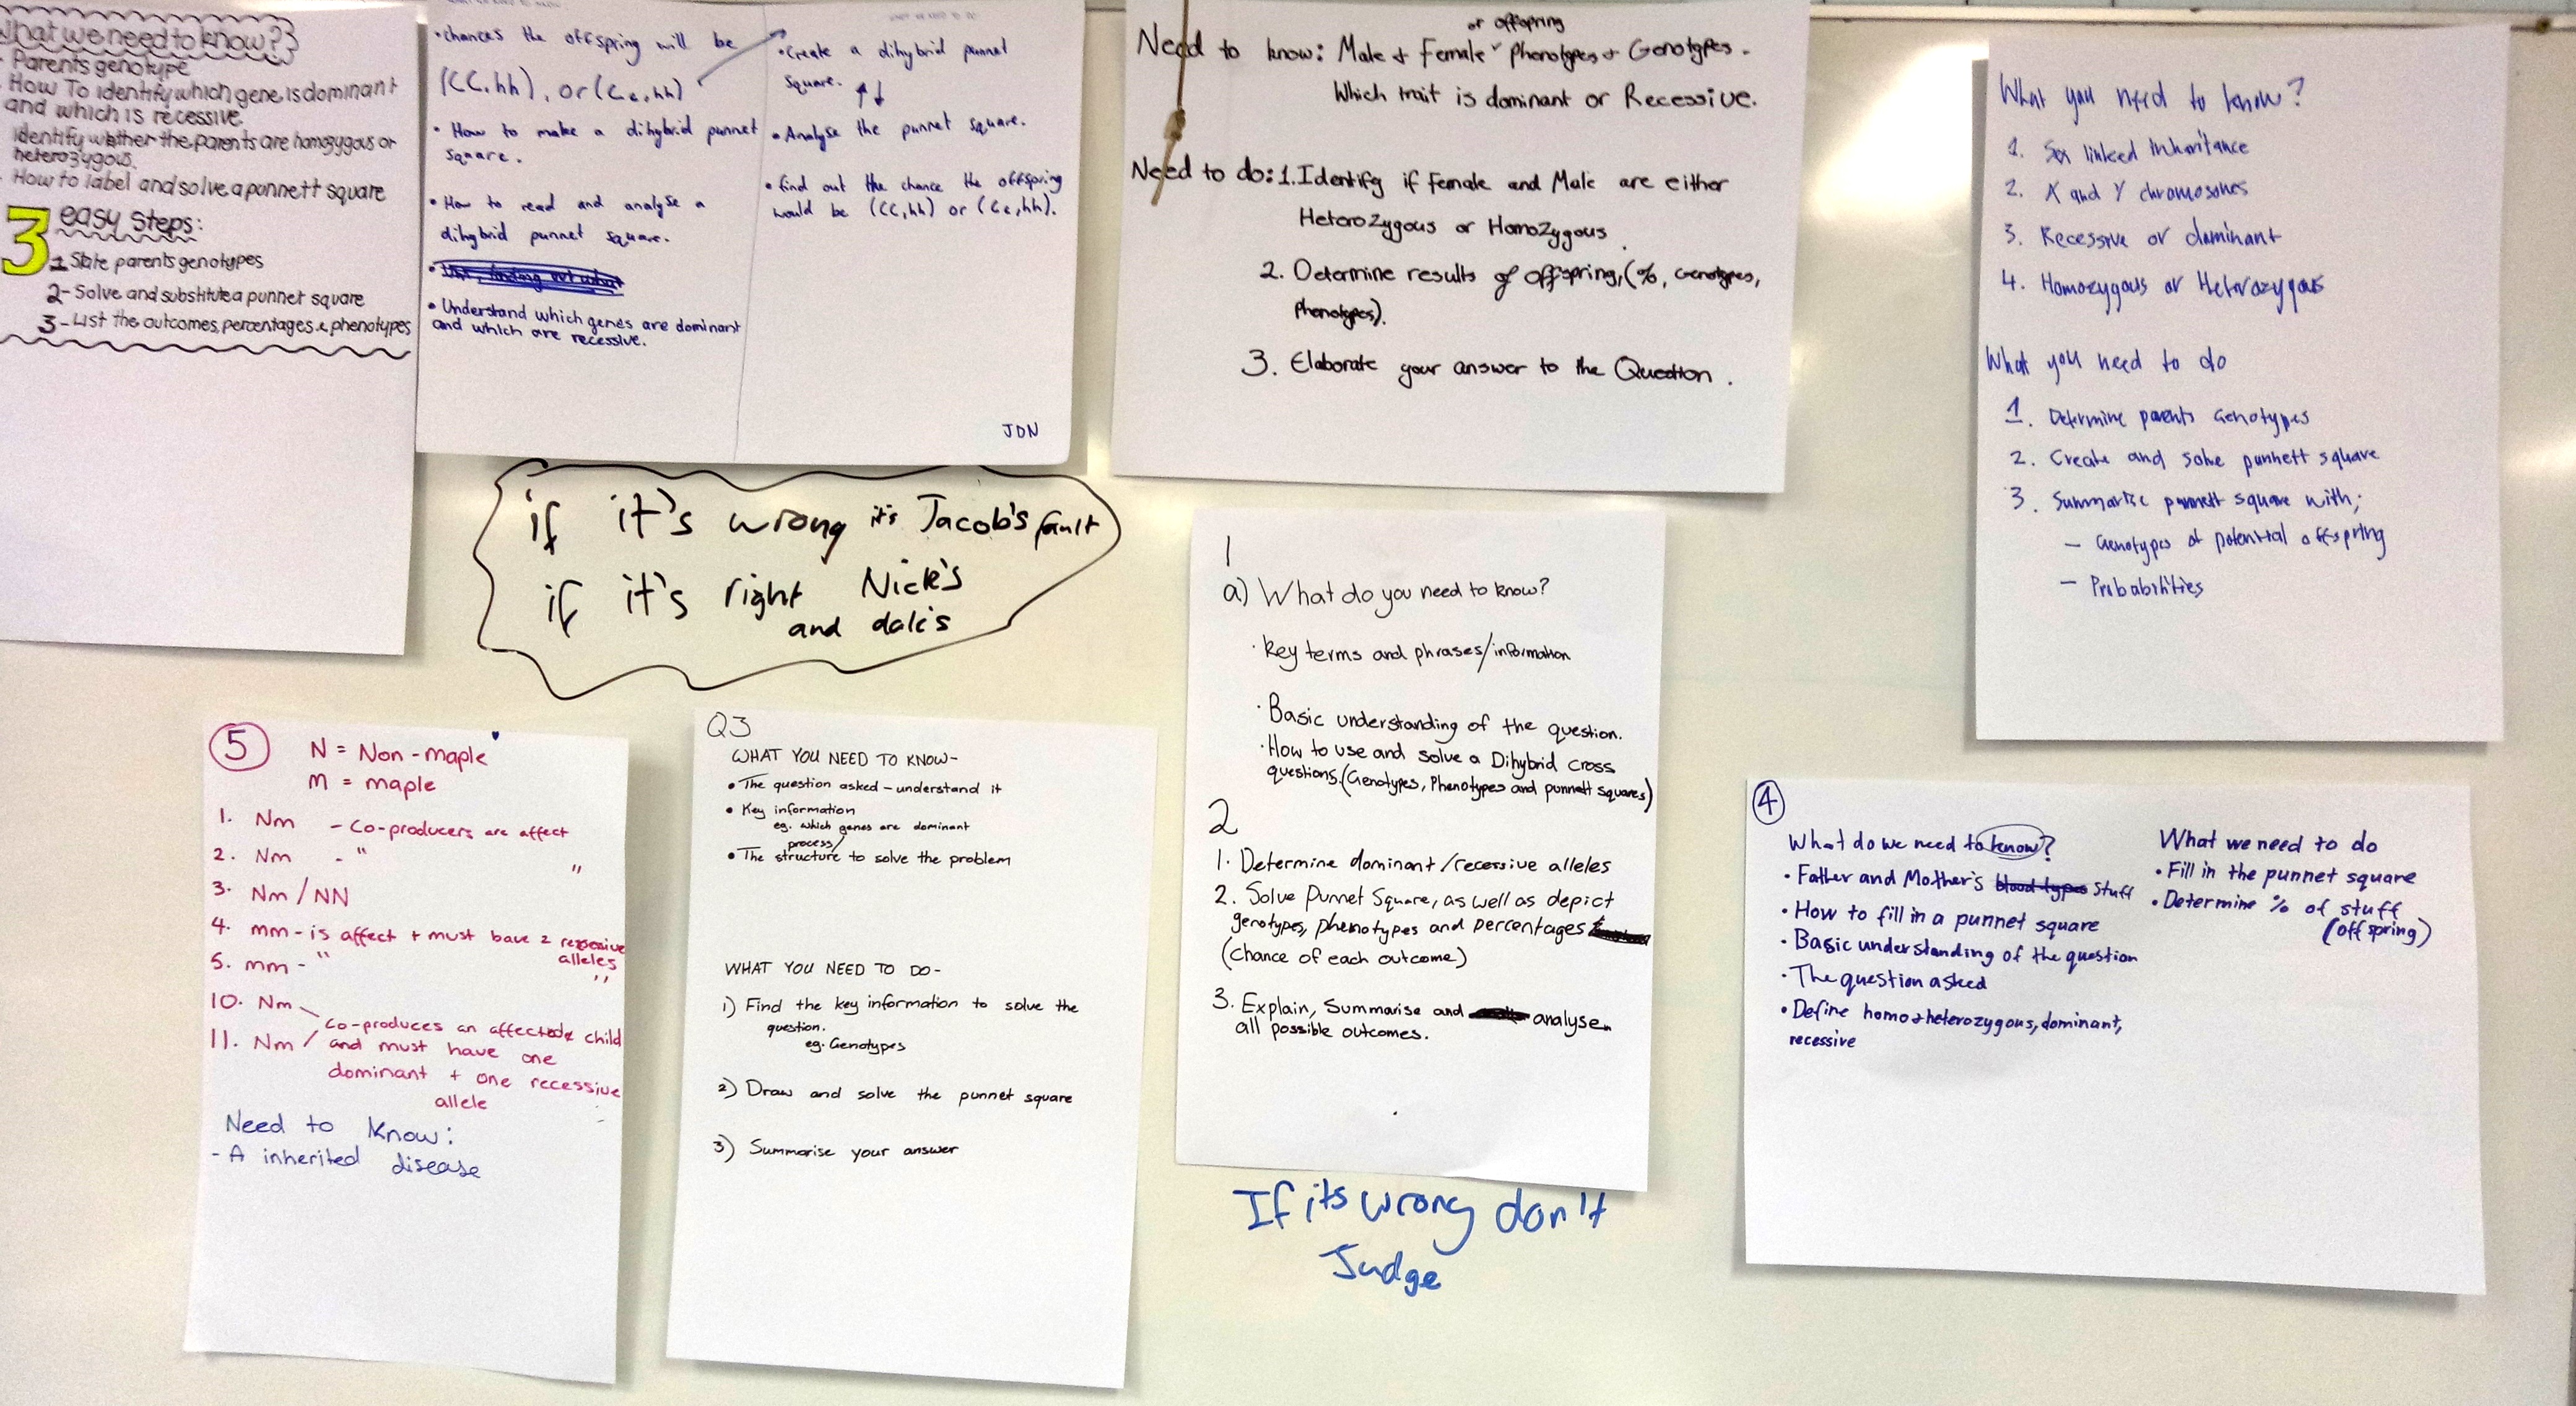 What we need to know?
- Parents genotype
- How To identify which gene is dominant
and which is recessive
Identify whether the parents are homozygous or
heterozygous.
- How to label and solve a punnett square
3 easy steps:
1 State parents genotypes
2- Solve and substitute a punnet square
3- List the outcomes, percentages & phenotypes
• chances the offspring will be
(CC,hh), or (Cc,hh)
• How to make a dihybrid punnet
square.
• How to read and analyse a
dihybrid punnet square.
• Understand which genes are dominant
and which are recessive.
• Create a dihybrid punnet
square.
• Analyse the punnet square.
• find out the chance the offspring
would be (CC,hh) or (Cc,hh).
JDN
or offspring
Need to know: Male + Female phenotypes + Genotypes.
Which trait is dominant or Recessive.
Need to do: 1. Identify if Female and Male are either
HeteroZygous or HomoZygous.
2. Determine results of offspring, (%, Genotypes,
Phenotypes).
3. Elaborate your answer to the Question.
What you need to know?
1. Sex linked inheritance
2. X and Y chromosones
3. Recessive or dominant
4. Homozygous or Heterozygous
What you need to do
1. Determine parents Genotypes
2. Create and solve punnett square
3. Summarise punnett square with;
- Genotypes of potential offspring
- Probabilities
if it's wrong it's Jacob's fault
if it's right Nick's
and dale's
1
a) What do you need to know?
· Key terms and phrases/information
· Basic understanding of the question.
· How to use and solve a Dihybrid cross
questions. (Genotypes, Phenotypes and punnett squares)
2
1. Determine dominant/recessive alleles
2. Solve Punnet Square, as well as depict
genotypes, phenotypes and percentages
(chance of each outcome)
3. Explain, Summarise and analyse
all possible outcomes.
If its wrong don't
Judge
5
N = Non-maple
m = maple
1. Nm - Co-producers are affect
2. Nm - " "
3. Nm / NN
4. mm - is affect + must have 2 recessive
alleles
5. mm - " "
10. Nm
Co-produces an affected child
11. Nm / and must have one
dominant + one recessive
allele
Need to know:
- A inherited disease
Q3
WHAT YOU NEED TO KNOW-
• The question asked - understand it
• Key information
eg. which genes are dominant
process/
• The structure to solve the problem
WHAT YOU NEED TO DO-
1) Find the key information to solve the
question.
eg. Genotypes
2) Draw and solve the punnet square
3) Summarise your answer
4
What do we need to know?
• Father and Mother's blood types stuff
• How to fill in a punnet square
• Basic understanding of the question
• The question asked
• Define homo + heterozygous, dominant,
recessive
What we need to do
• Fill in the punnet square
• Determine % of stuff
(offspring)